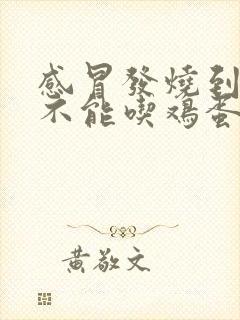 感冒發燒到
不能喫鸡蛋
黄敬文